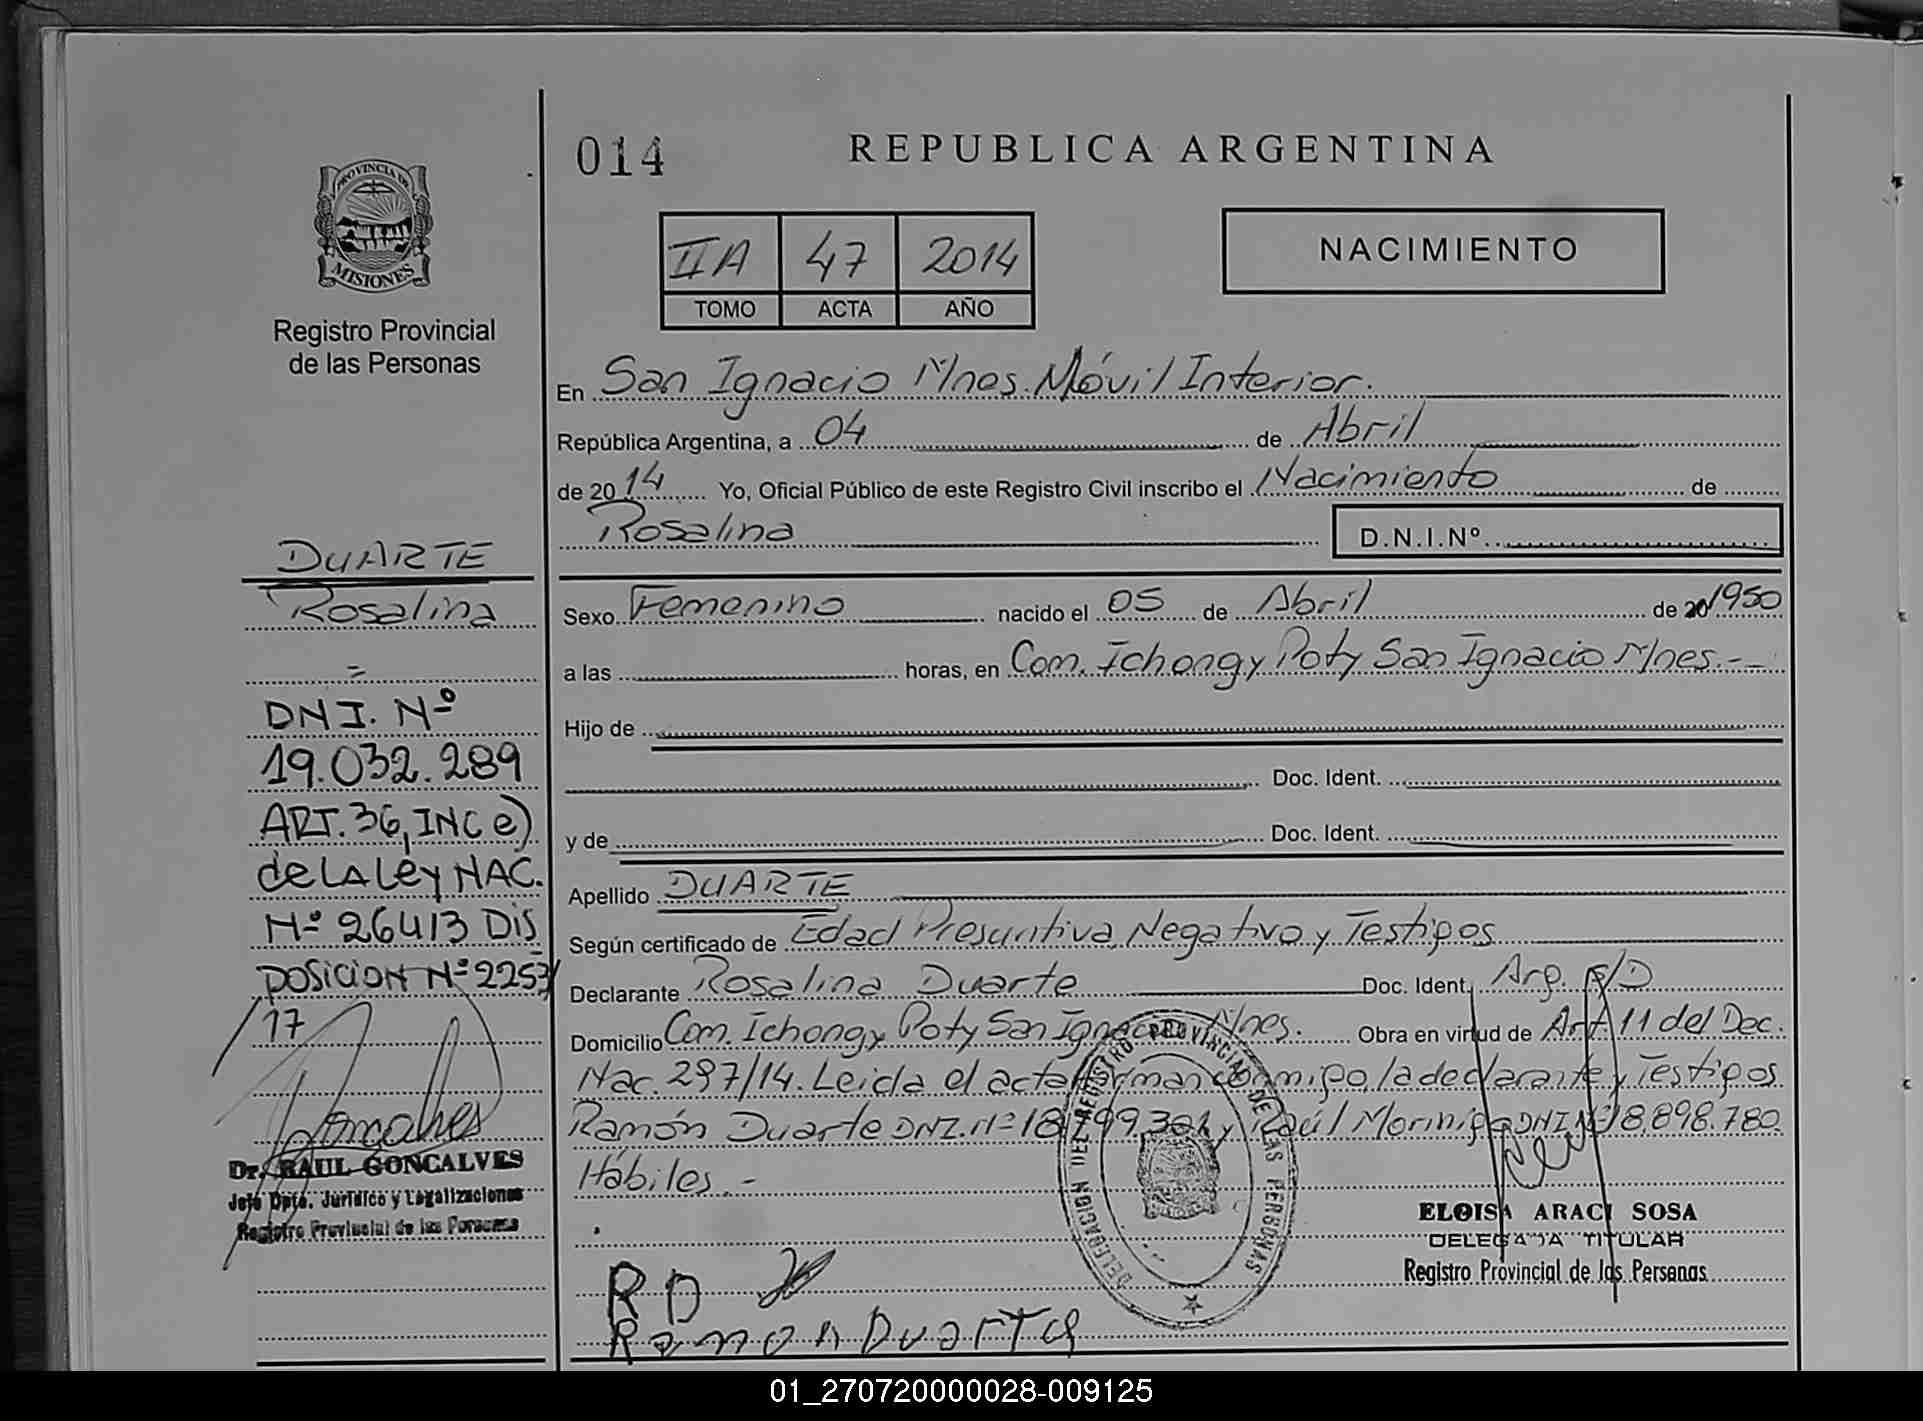 014
REPUBLICA ARGENTINA
PROVINCIA DE
MISIONES
Registro Provincial
de las Personas
IIA 47 2014
TOMO ACTA AÑO
NACIMIENTO
En San Ignacio Mnes. Móvil Interior.
República Argentina, a 04 de Abril
de 2014 Yo, Oficial Público de este Registro Civil inscribo el Nacimiento de
Rosalina D.N.I.Nº
DUARTE
Rosalina
=
DNI. Nº
19.032.289
ART. 36, INC e)
de LA Ley NAC.
Nº 26413 DIS
POSICION Nº 2253/
17
Goncalves
Dr. RAUL GONCALVES
Jefe Dpto. Jurídico y Legalizaciones
Registro Provincial de las Personas
Sexo Femenino nacido el 05 de Abril de 20 1950
a las horas, en Com. Ichongy Poty San Ignacio Mnes.-
Hijo de
Doc. Ident.
y de Doc. Ident.
Apellido DUARTE
Según certificado de Edad Presuntiva, Negativo y Testigos
Declarante Rosalina Duarte Doc. Ident. Arg. s/D
Domicilio Com. Ichongy Poty San Ignacio Mnes. Obra en virtud de Art. 11 del Dec.
Nac. 297/14. Leida el acta firman conmigo, la declarante y Testigos
Ramón Duarte DNI. Nº y Raúl Morinigo DNI Nº 18.898.780
Hábiles.-
DELEGACION DEL REGISTRO PROVINCIAL DE LAS PERSONAS
ELOISA ARACI SOSA
DELEGADA TITULAR
Registro Provincial de las Personas
RD
Ramon Duarte
01_270720000028-009125